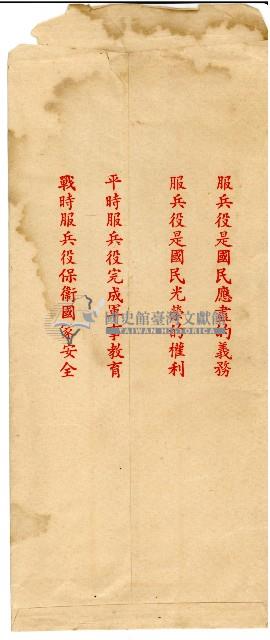 服兵役是國民應盡的義務
服兵役是國民光榮的權利
平時服兵役完成軍事教育
戰時服兵役保衛國家安全
國史館臺灣文獻館
TAIWAN HISTORICA